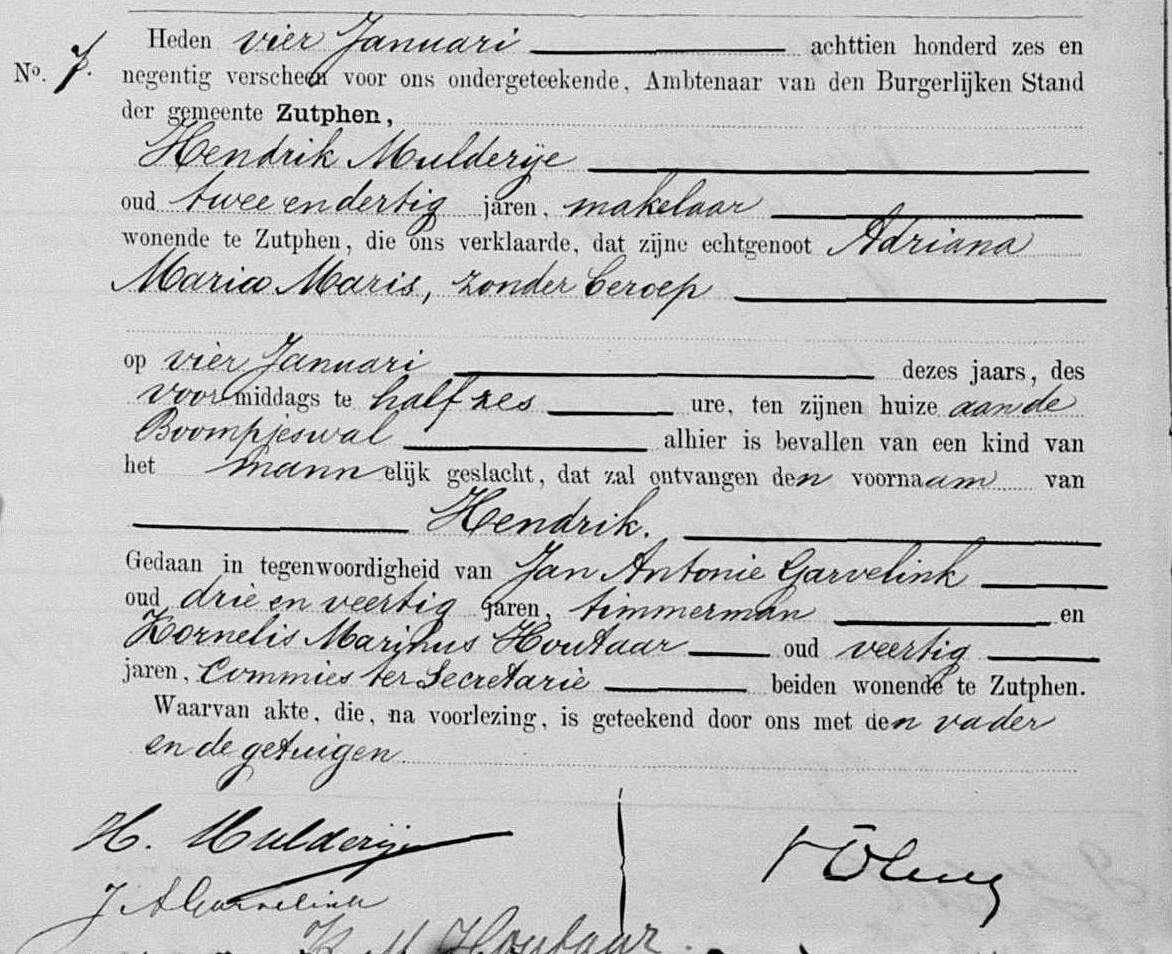 Heden vier Januari achttien honderd zes en
No. 7. negentig verscheen voor ons ondergeteekende, Ambtenaar van den Burgerlijken Stand
der gemeente Zutphen,
Hendrik Mulderije
oud twee en dertig jaren, makelaar
wonende te Zutphen, die ons verklaarde, dat zijne echtgenoot Adriana
Maria Maris, zonder beroep
op vier Januari dezes jaars, des
voormiddags te half zes ure, ten zijnen huize aan de
Boompjeswal alhier is bevallen van een kind van
het mannelijk geslacht, dat zal ontvangen den voornaam van
Hendrik.
Gedaan in tegenwoordigheid van Jan Antonie Garvelink
oud drie en veertig jaren, timmerman en
Kornelis Marinus Houtaar oud veertig
jaren, Commies ter Secretarie beiden wonende te Zutphen.
Waarvan akte, die, na voorlezing, is geteekend door ons met den vader
en de getuigen
H. Mulderije
J A Garvelink
K. M. Houtaar.